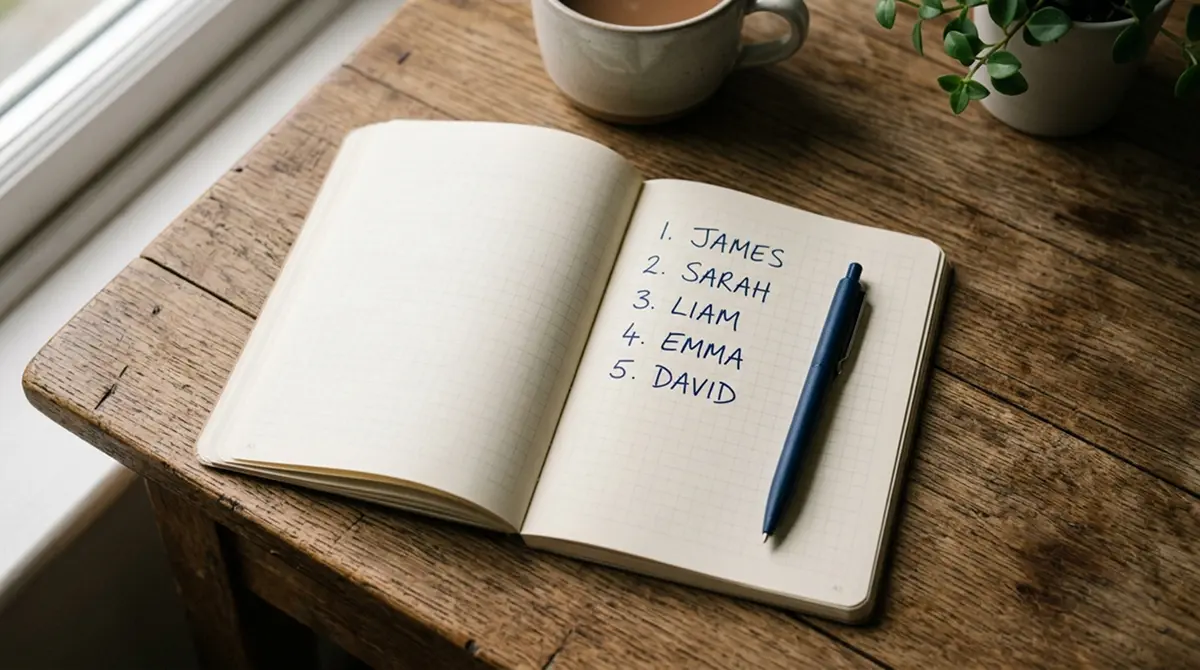 1. JAMES
2. SARAH
3. LIAM
4. EMMA
5. DAVID